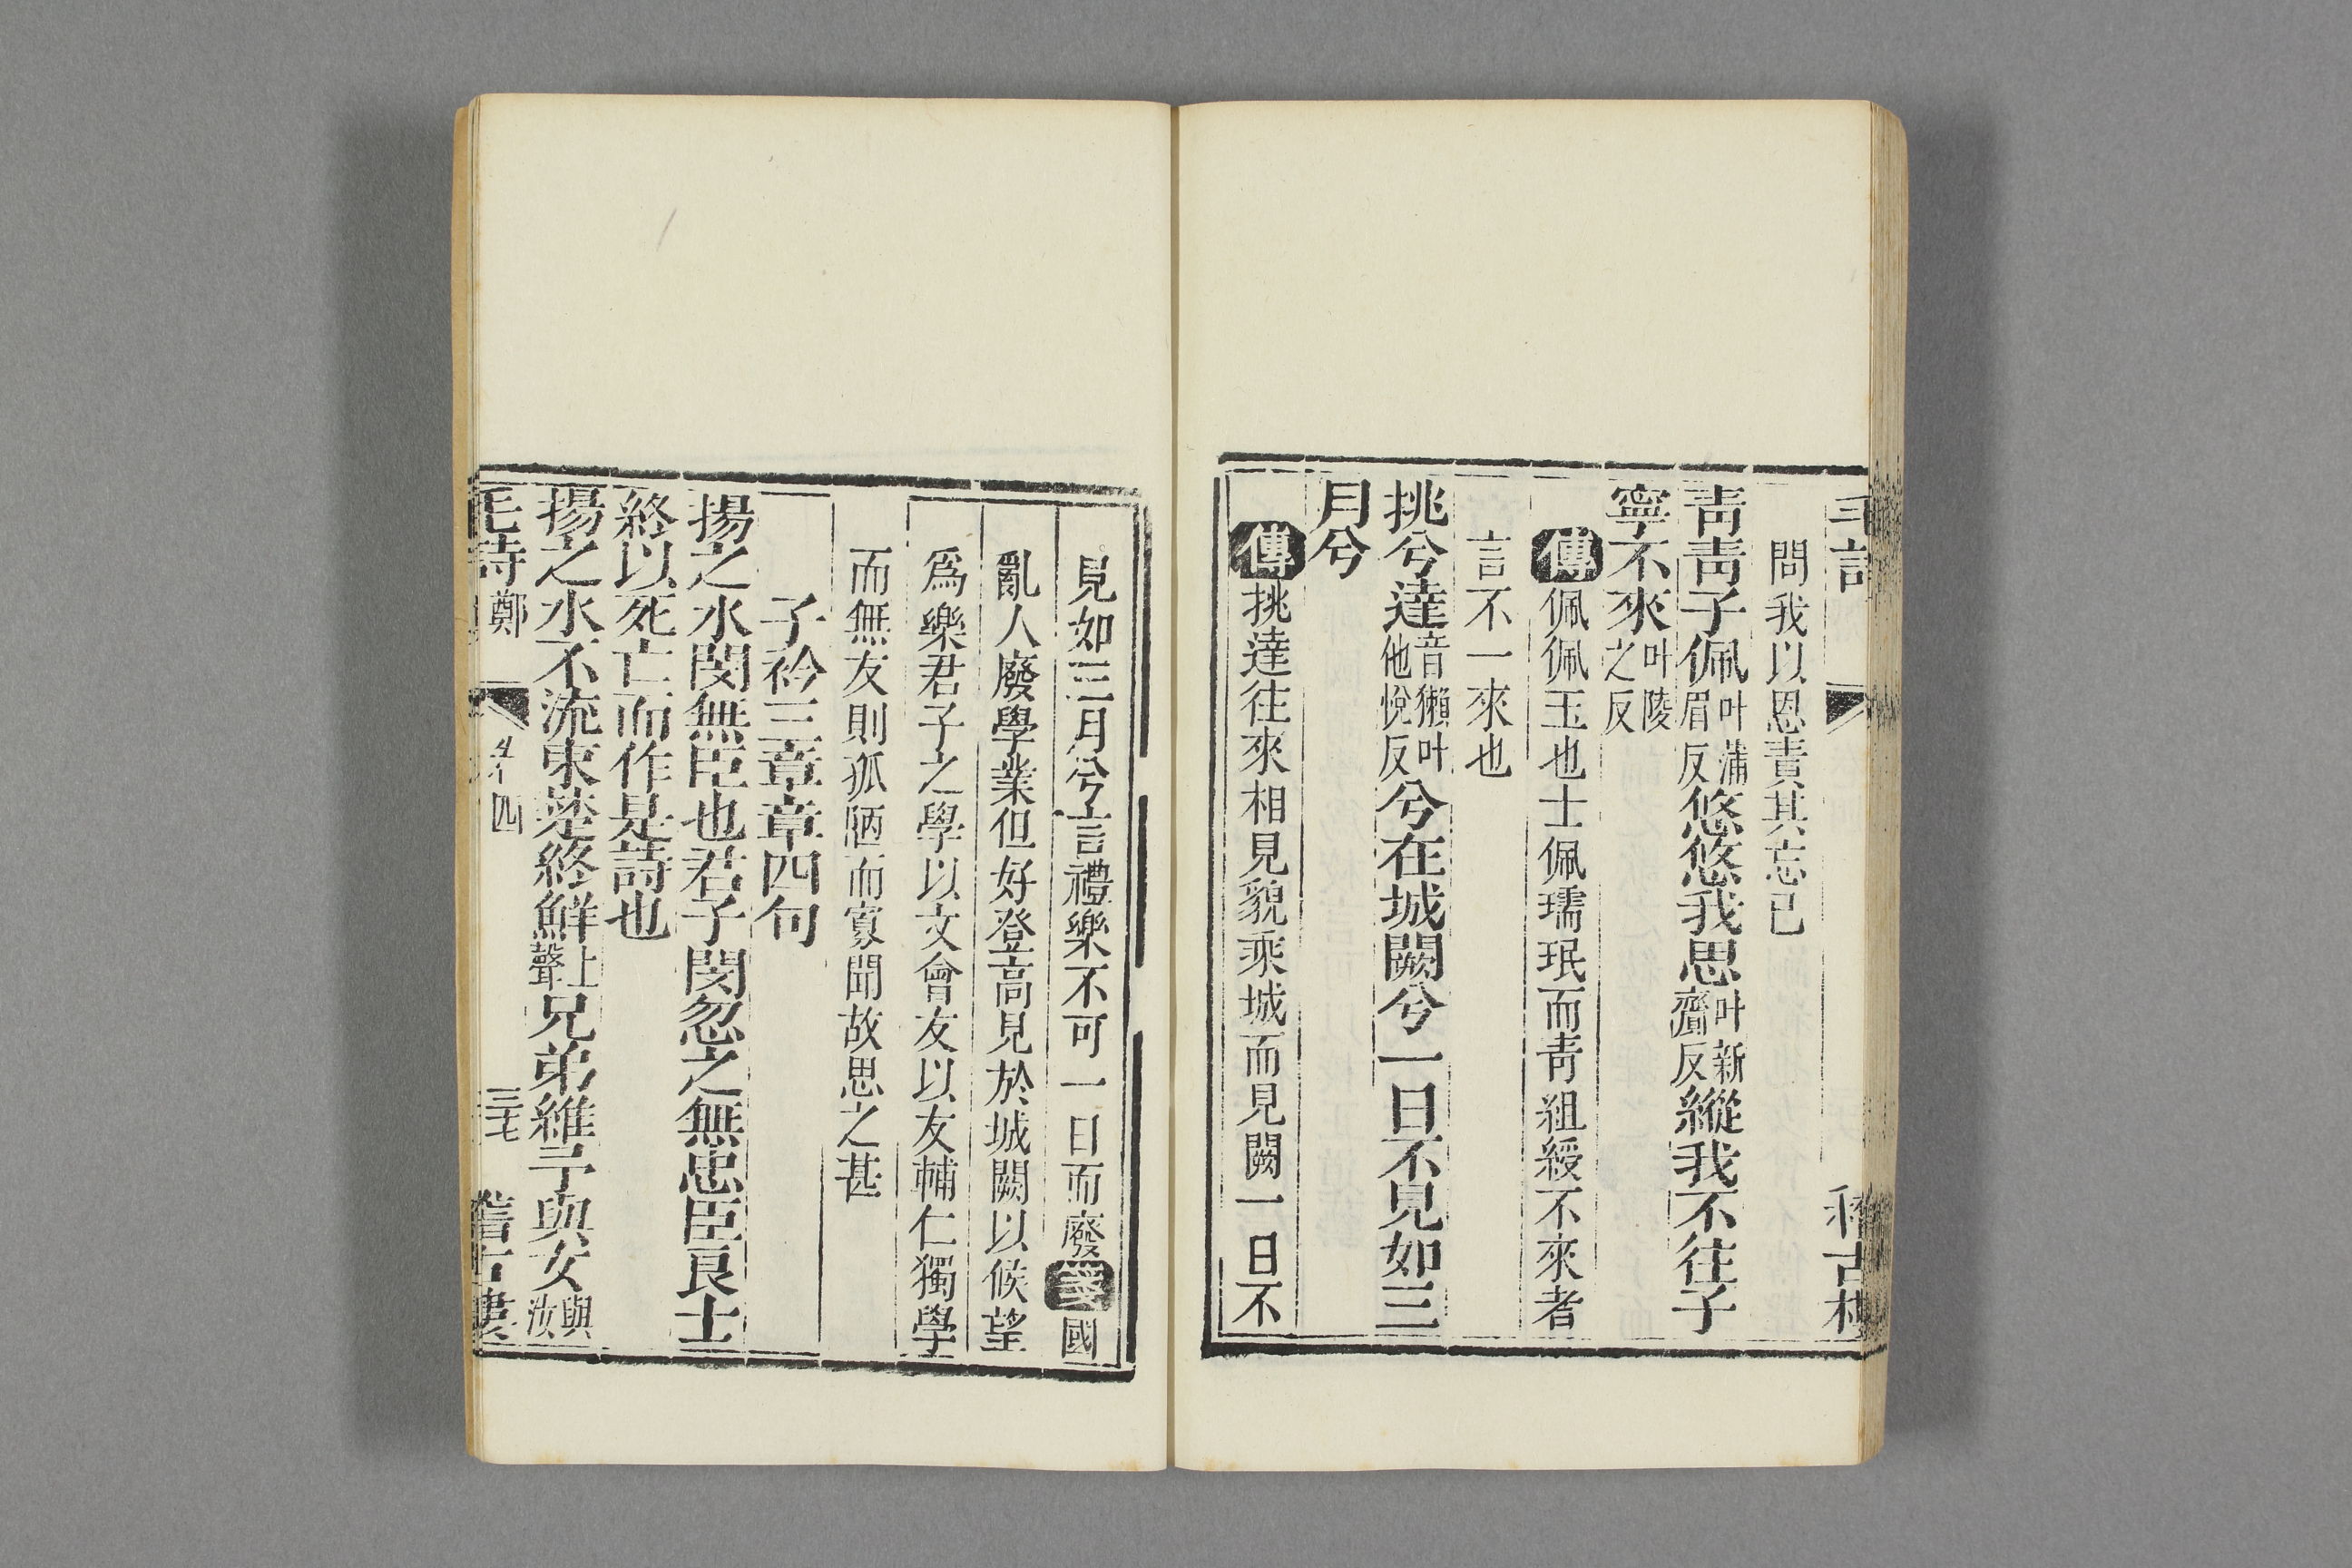 毛詩
稽古樓
問我以恩責其忘己
靑靑子佩叶蒲眉反悠悠我思叶新齎反縱我不往子
寧不來叶陵之反
傳佩佩玉也士佩瓀珉而靑組綬不來者
言不一來也
挑兮達音獺叶他悅反兮在城闕兮一日不見如三
月兮
傳挑達往來相見貌乘城而見闕一日不
見如三月兮言禮樂不可一日而廢箋國
亂人廢學業但好登高見於城闕以候望
爲樂君子之學以文會友以友輔仁獨學
而無友則孤陋而寡聞故思之甚
子衿三章章四句
揚之水閔無臣也君子閔忽之無忠臣良士
終以死亡而作是詩也
揚之水不流束楚終鮮上聲兄弟維予與女與汝
毛詩 鄭 卷四 三七 稽古樓